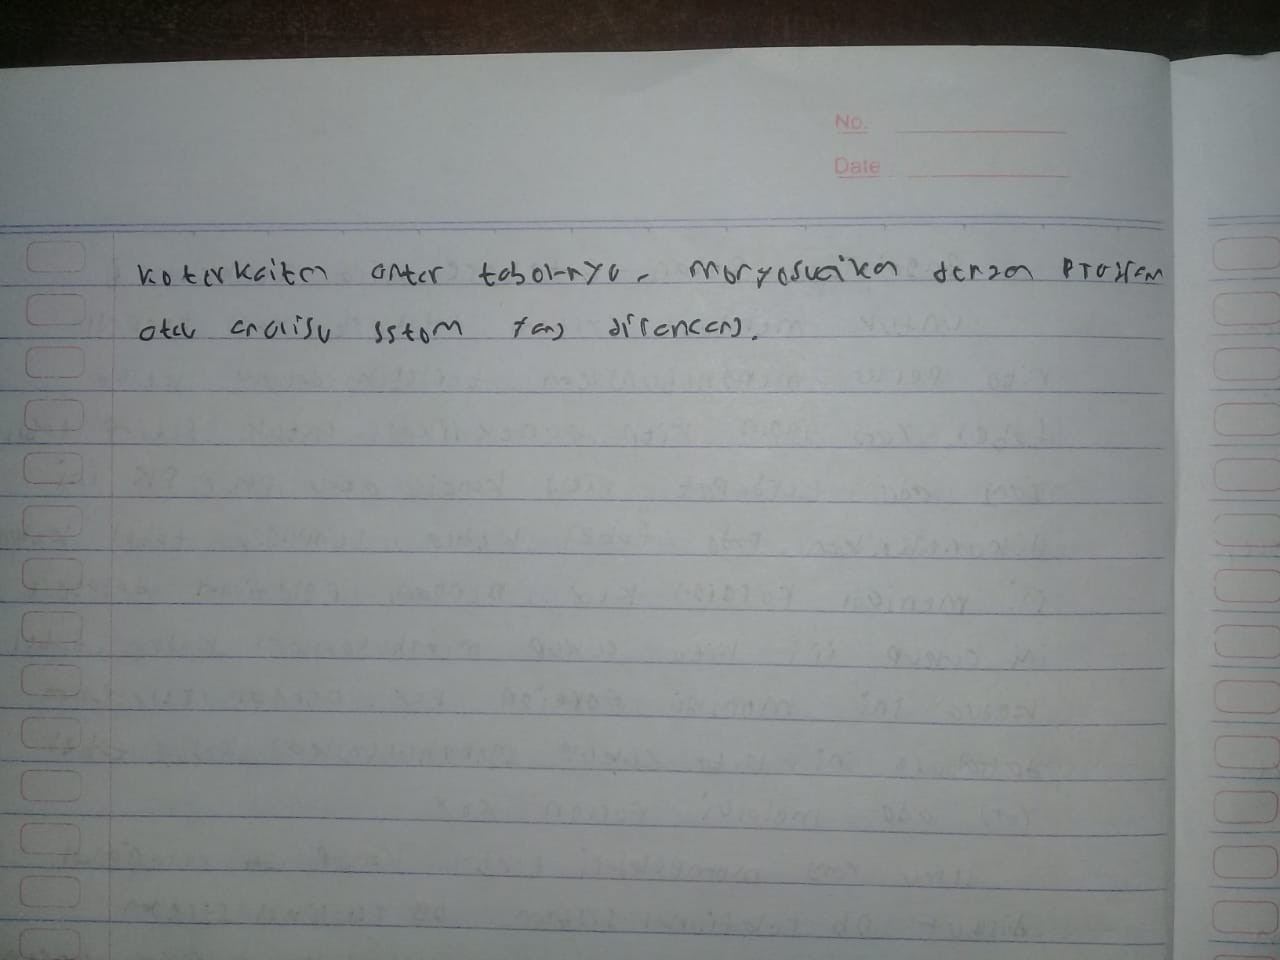 No.
Date
keterkaitan antar tabel-nya. Menyesuaikan dengan program
atau analisu sstem yang dirancang.